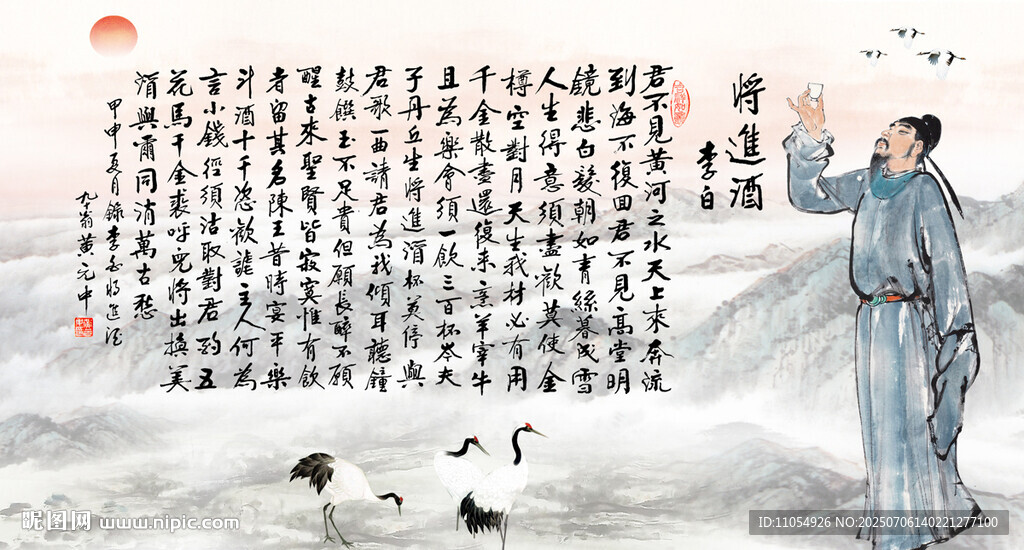 將進酒
李白
君不見黄河之水天上來奔流
到海不復回君不見高堂明
鏡悲白髮朝如青絲暮成雪
人生得意須盡歡莫使金
樽空對月天生我材必有用
千金散盡還復来烹羊宰牛
且為樂會須一飲三百杯岑夫
子丹丘生將進酒杯莫停與
君歌一曲請君為我傾耳聽鐘
鼓饌玉不足貴但願長醉不願
醒古來聖賢皆寂寞惟有飲
者留其名陳王昔時宴平樂
斗酒十千恣歡謔主人何為
言少錢徑須沽取對君酌五
花馬千金裘呼兒將出換美
酒與爾同消萬古愁
甲申夏月錄李白將進酒
九翁黄元中
昵图网 www.nipic.com
ID:11054926 NO:20250706140221277100